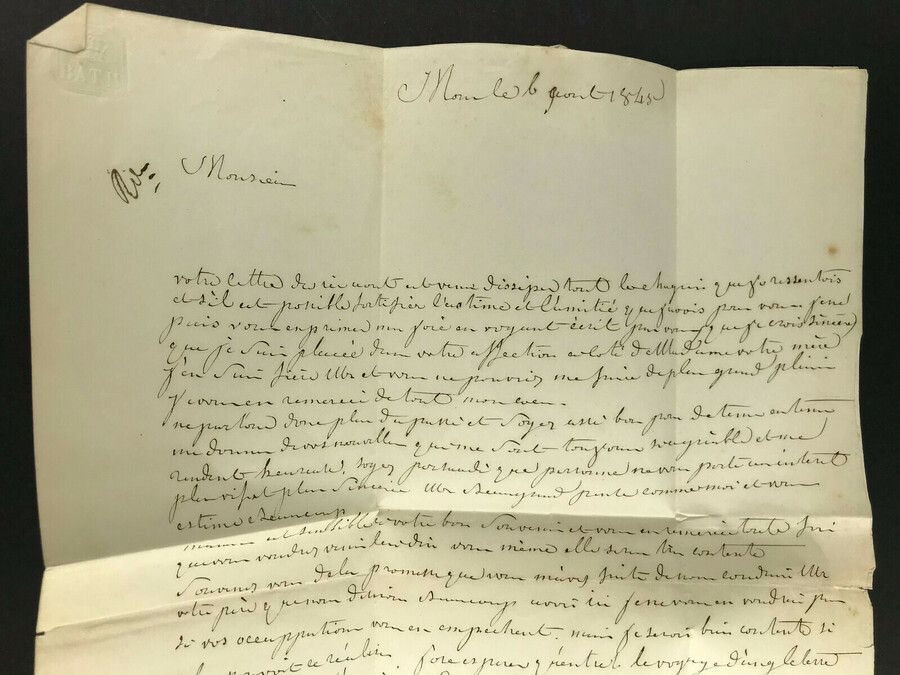 le 6 aout 1845
Rép
Monsieur
votre lettre du aout est venu dissiper tout le chagrin que je ressentois
et s'il est possible fortifier l'estime et l'amitié que j'avois pour vous. je ne
puis vous exprimer ma joie en voyant écrit par vous que je crois sincère
que je suis placée dans votre affection a coté de Madame votre mère
j'en suis fière Mr et vous ne pouviez me faire de plus grand plaisir
je vous en remercie de tout mon coeur.
ne parlons donc plus du passé et soyez assé bon pour de tems en tems
me donner de vos nouvelles qui me sont toujours agréable et me
rendent heureuse. soyez persuadé que personne ne vous porte un intéret
plus vif et plus sincère Mr pense comme moi et vous
estime beaucoup
maman est sensible a votre bon souvenir et vous en remercie
que vous voudrez bien lui dire vous même elle sera bien contente
souvenez vous de la promesse que vous m'avez faite de nous conduire Mr
votre père que nous désirons beaucoup avoir ici je ne vous en voudrai pas
si vos occupations vous en empechent. mais je serois bien contente si
réaliser. j'ose esperer qu'entre le voyage d'angleterre